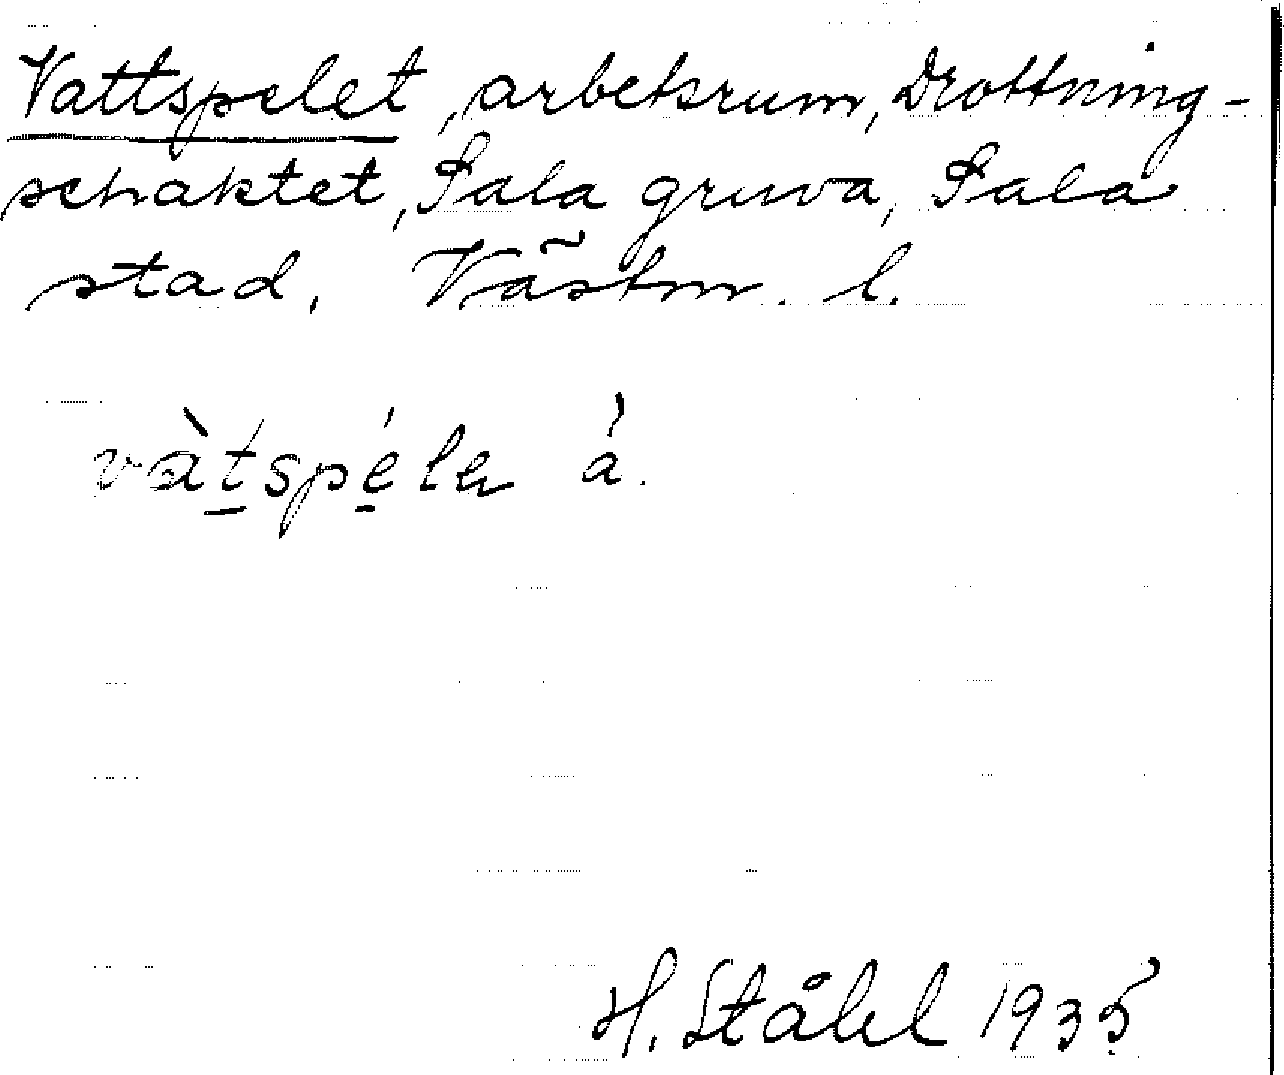 Vattspelet, arbetsrum, Drottning-
schaktet, Sala gruva, Sala
stad. Västm. l.
vàtspéle à.
H. Ståhl 1935